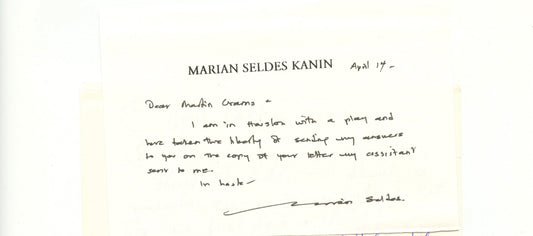 MARIAN SELDES KANIN
April 14 -
Dear Martin Grams -
I am in Houston with a play and
have taken the liberty of sending my answers
to you on the copy of your letter my assistant
sent to me.
In haste -
Marian Seldes